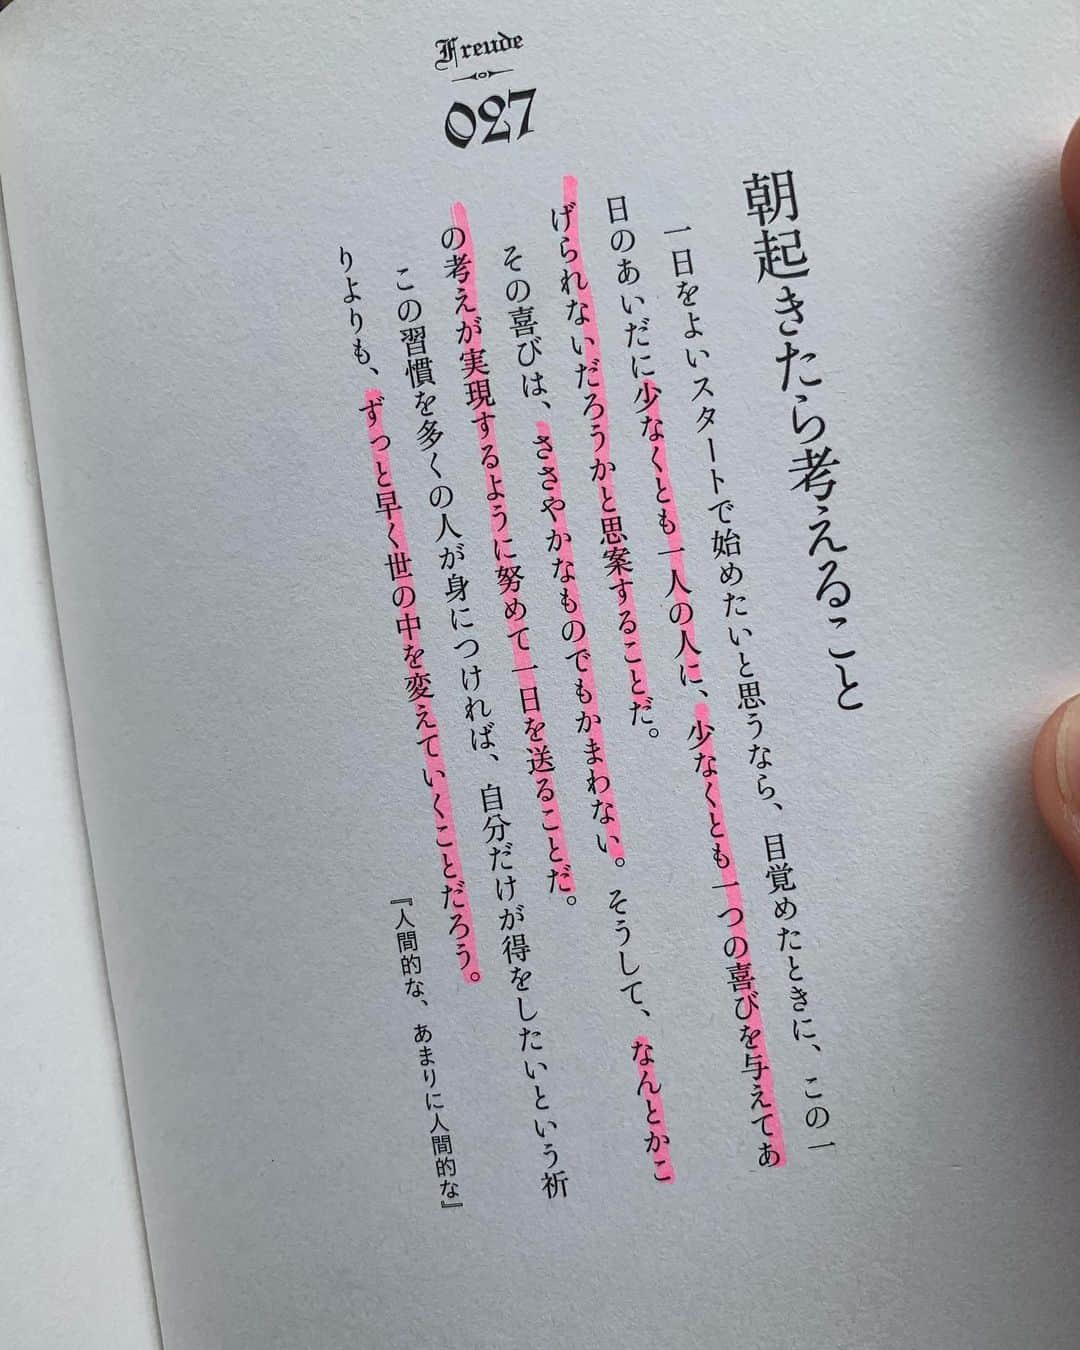 Freude
027
朝起きたら考えること
一日をよいスタートで始めたいと思うなら、目覚めたときに、この一
日のあいだに少なくとも一人の人に、少なくとも一つの喜びを与えてあ
げられないだろうかと思案することだ。
その喜びは、ささやかなものでもかまわない。そうして、なんとかこ
の考えが実現するように努めて一日を送ることだ。
この習慣を多くの人が身につければ、自分だけが得をしたいという祈
りよりも、ずっと早く世の中を変えていくことだろう。
『人間的な、あまりに人間的な』